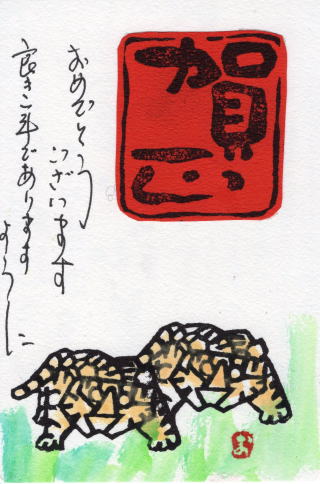 賀正
おめでとう
ございます
良き年であります
ように